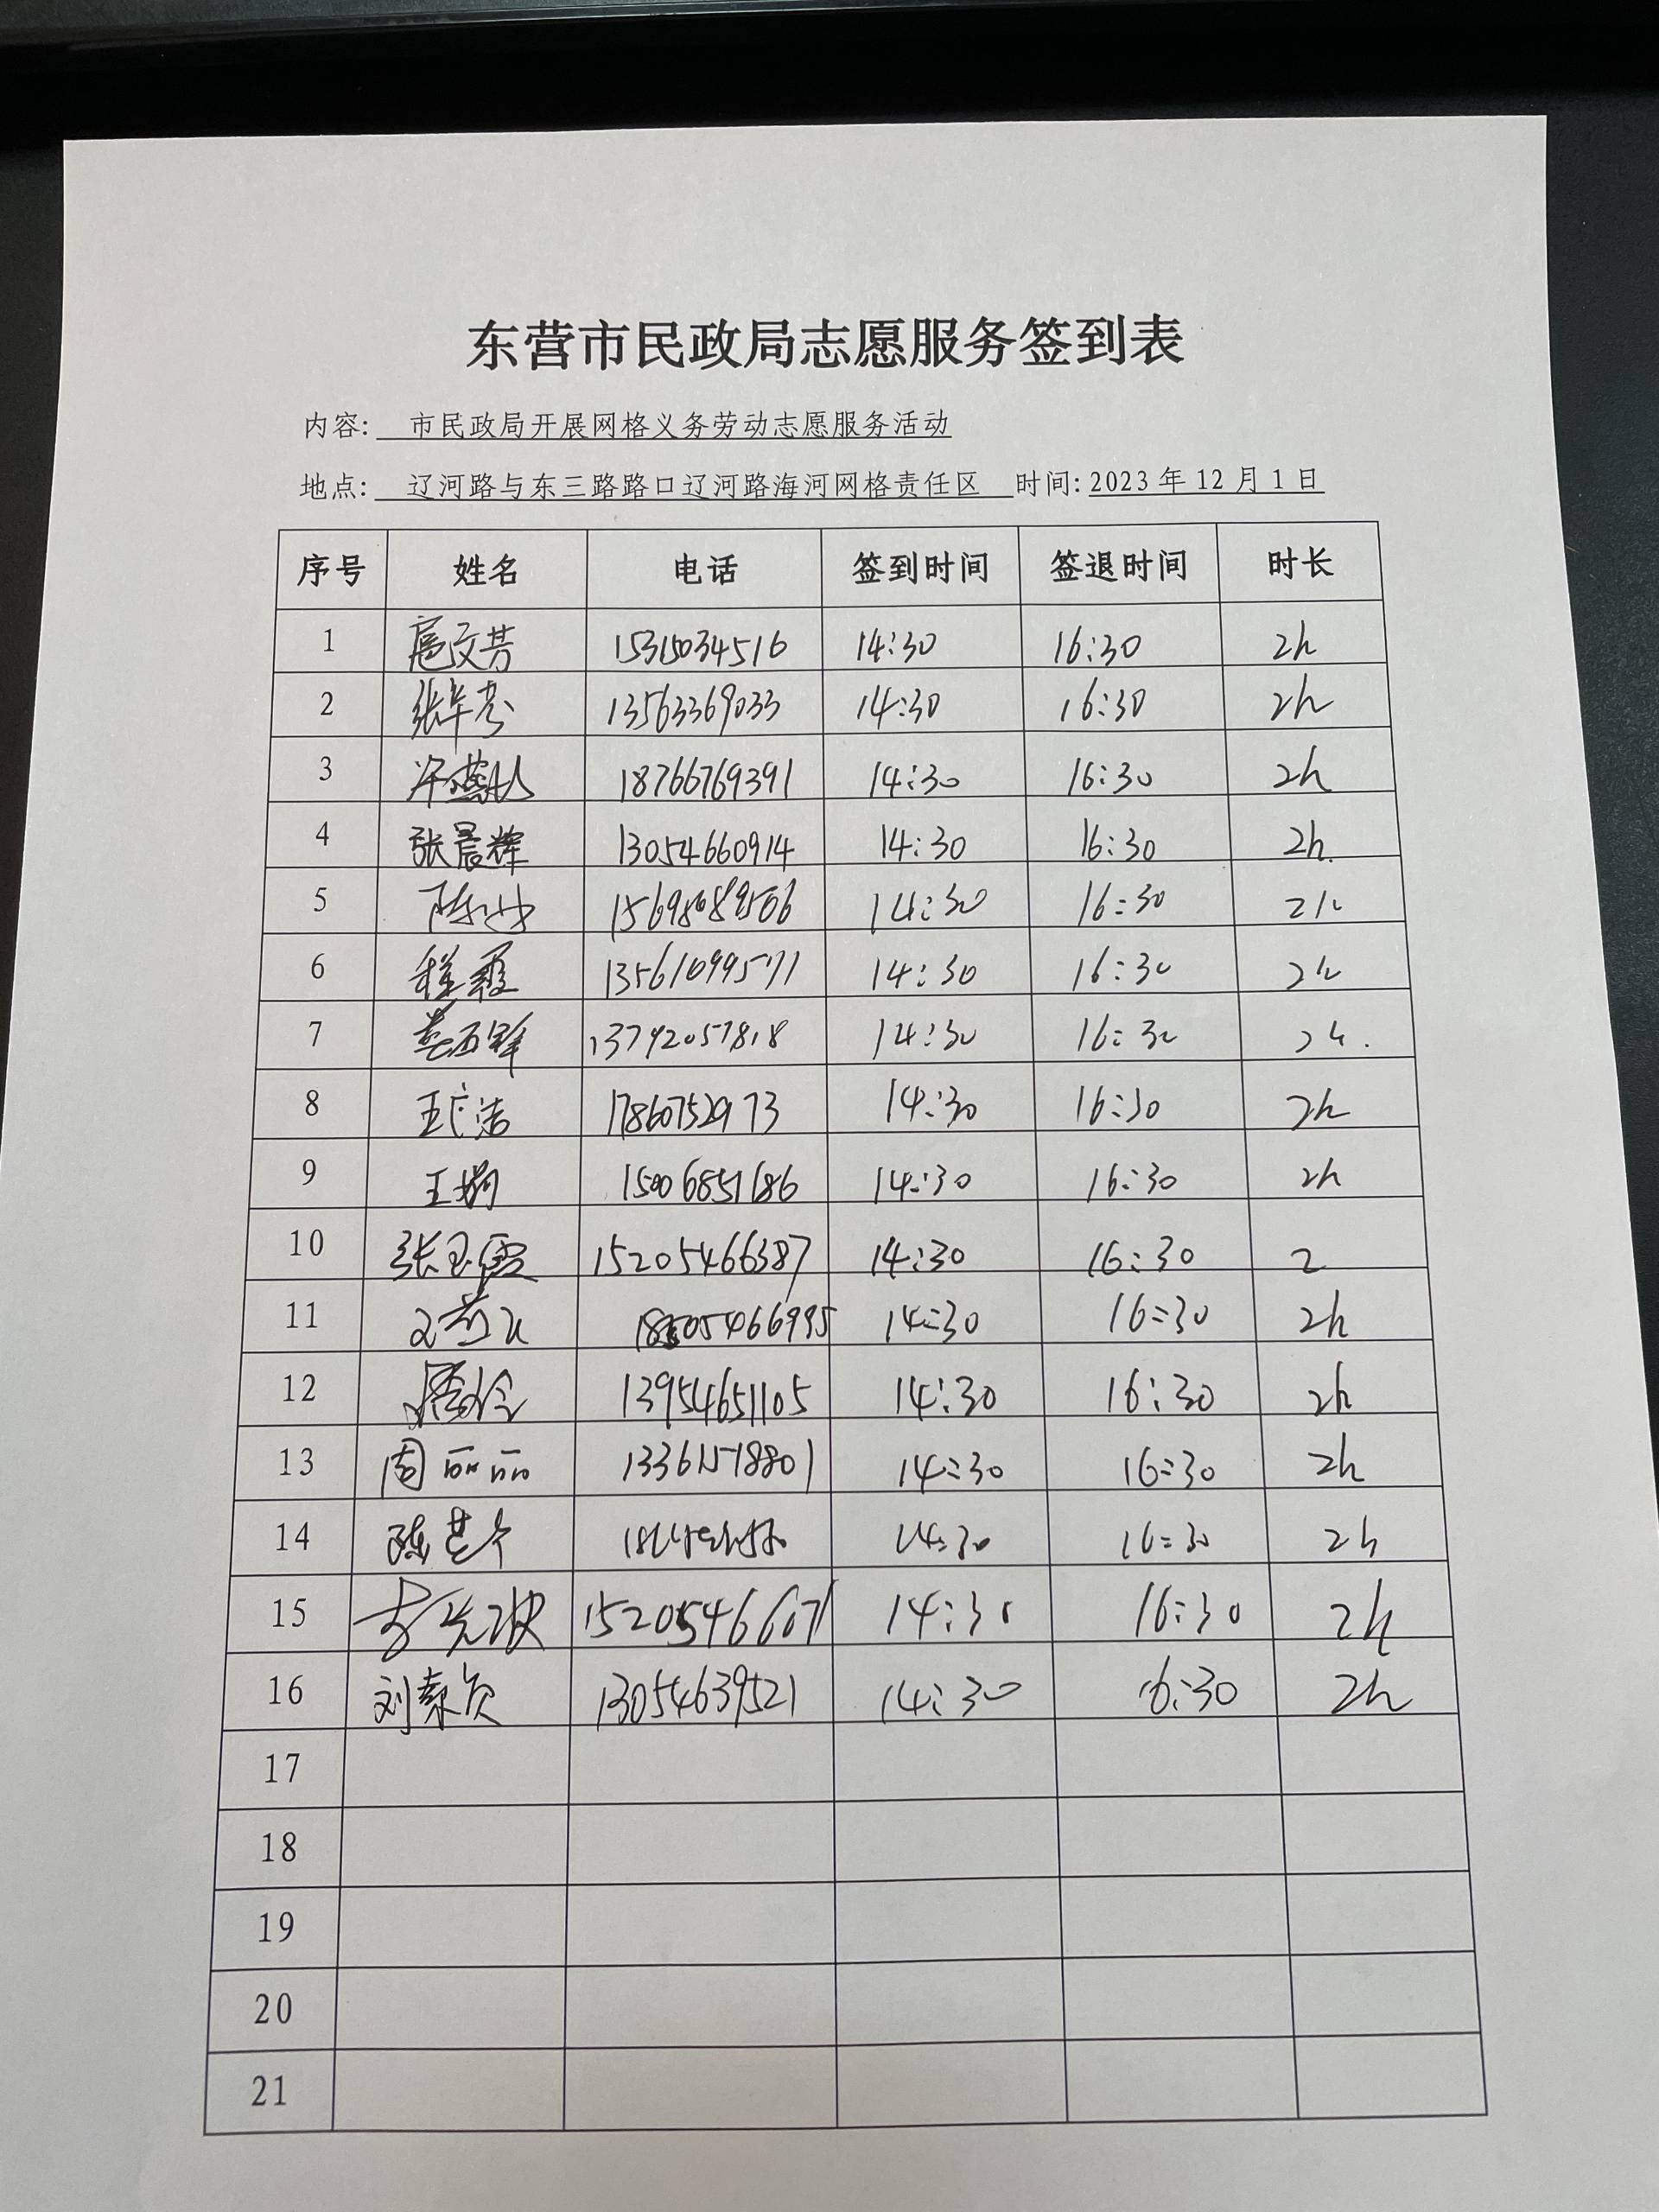 东营市民政局志愿服务签到表
内容: 市民政局开展网格义务劳动志愿服务活动
地点: 辽河路与东三路路口辽河路海河网格责任区 时间: 2023 年 12 月 1 日
序号 姓名 电话 签到时间 签退时间 时长
1 扈文芳 15315034516 14:30 16:30 2h
2 13563369033 14:30 16:30 2h
3 18766769391 14:30 16:30 2h
4 张晨辉 13054660914 14:30 16:30 2h.
5 14:30 16:30 2h
6 程霞 13561099571 14:30 16:30 2h
7 13792057818 14:30 16:30 2h.
8 17860752973 14:30 16:30 2h
9 王娟 15006851686 14:30 16:30 2h
10 张玉霞 15205466387 14:30 16:30 2
11 14:30 16:30 2h
12 13954651105 14:30 16:30 2h
13 周丽丽 13361518801 14:30 16:30 2h
14 14:30 16:30 2h
15 15205466071 14:30 16:30 2h
16 13054639521 14:30 16:30 2h
17
18
19
20
21